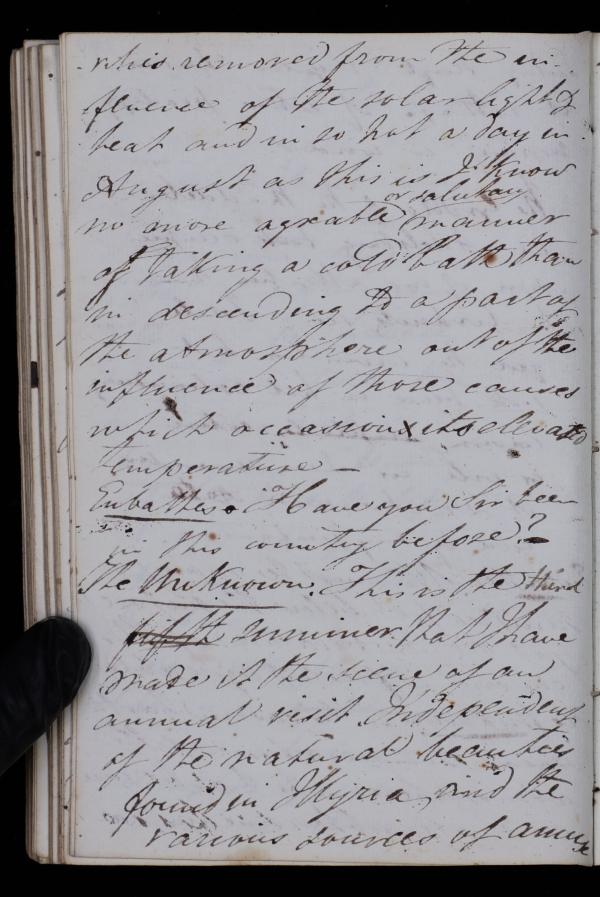 whis removed from the in-
fluence of the solar light &
heat and in so hot a day in
August as this is I know
or salutary
no more agreable manner
of taking a cold Bath than
in descending to a part of
the atmosphere out of the
influence of those causes
which occasion its elevated
temperature –
Eubathes. Have you Sir been
in this country before? –
The Unknown. This is the third
fifth summer that I have
made it the scene of an
annual visit. Independent
of the natural beauties
found in Illyria, and the
various sources of amuse